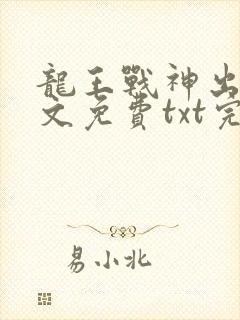 龍王戰神出
文免費txt完
易小北